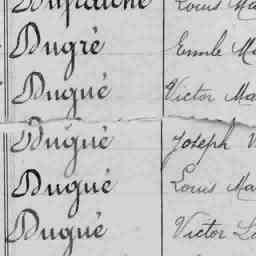 Dufraiche Louis Ma
Dugré Emile Ma
Dugué Victor Ma
Dugué Joseph V
Dugué Louis Ma
Dugué Victor L